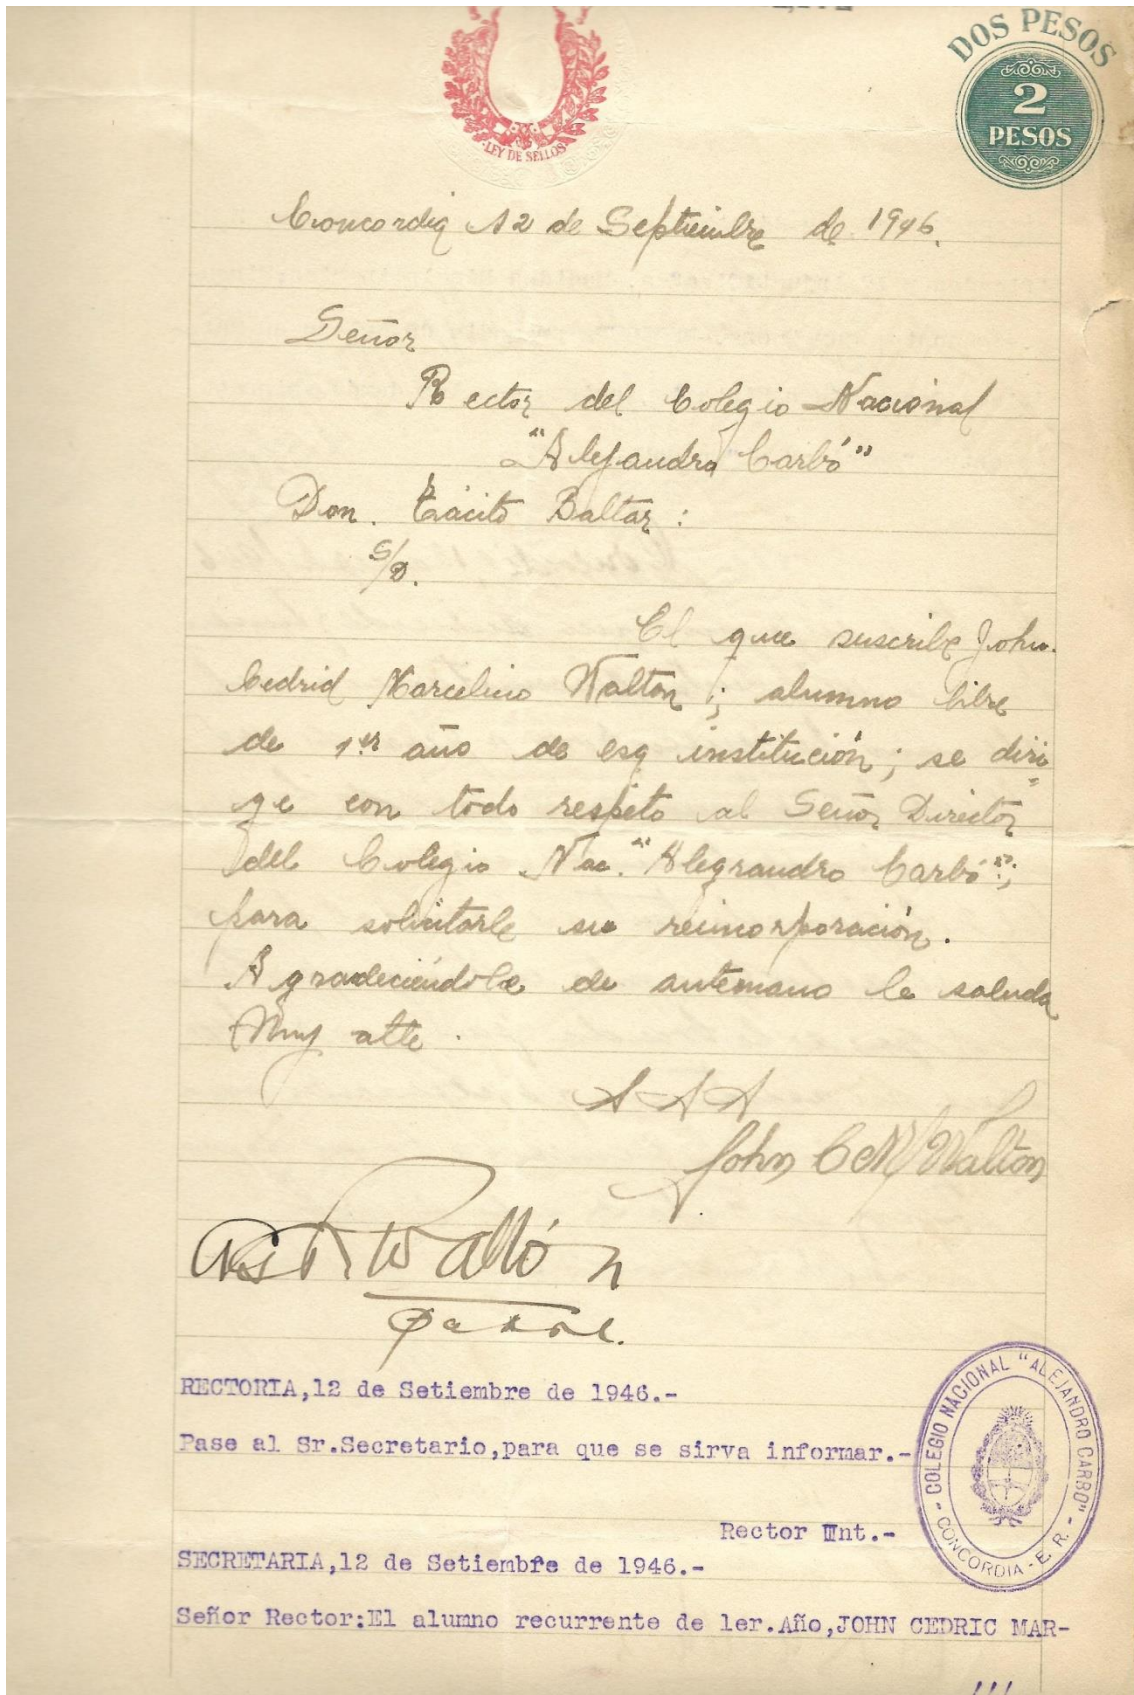 DOS PESOS
2
PESOS
LEY DE SELLOS
Concordia 12 de Septiembre de 1946.
Señor
Rector del Colegio Nacional
"Alejandro Carbó"
Don. Tácito Baltar:
S/D.
El que suscribe John.
Cedrid Marcelino Walton; alumno libre
de 1er año de esa institución; se diri
ge con todo respeto al Señor Director
del Colegio Nac. "Alegrandro Carbó";
para solicitarle su reincorporación.
Agradeciéndole de antemano le saluda
Muy atte.
John C M Walton
Walton
RECTORIA,12 de Setiembre de 1946.-
Pase al Sr.Secretario,para que se sirva informar.-
Rector Int.-
COLEGIO NACIONAL "ALEJANDRO CARBO" - CONCORDIA - E. R. -
SECRETARIA,12 de Setiembre de 1946.-
Señor Rector:El alumno recurrente de 1er.Año,JOHN CEDRIC MAR-
///